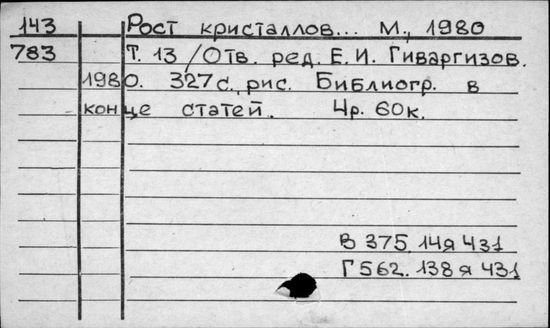 143 Рост кристаллов... М., 1980
783 Т. 13 / Отв. ред. Е. И. Гиваргизов.
1980. 327с., рис. Библиогр. в
конце статей. 4р. 60к.
В 375.14я431
Г562.138я431